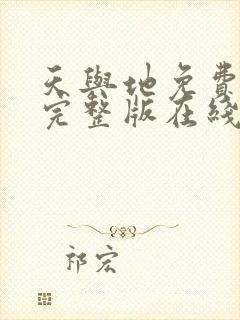 天與地免費
完整版在綫
祁宏